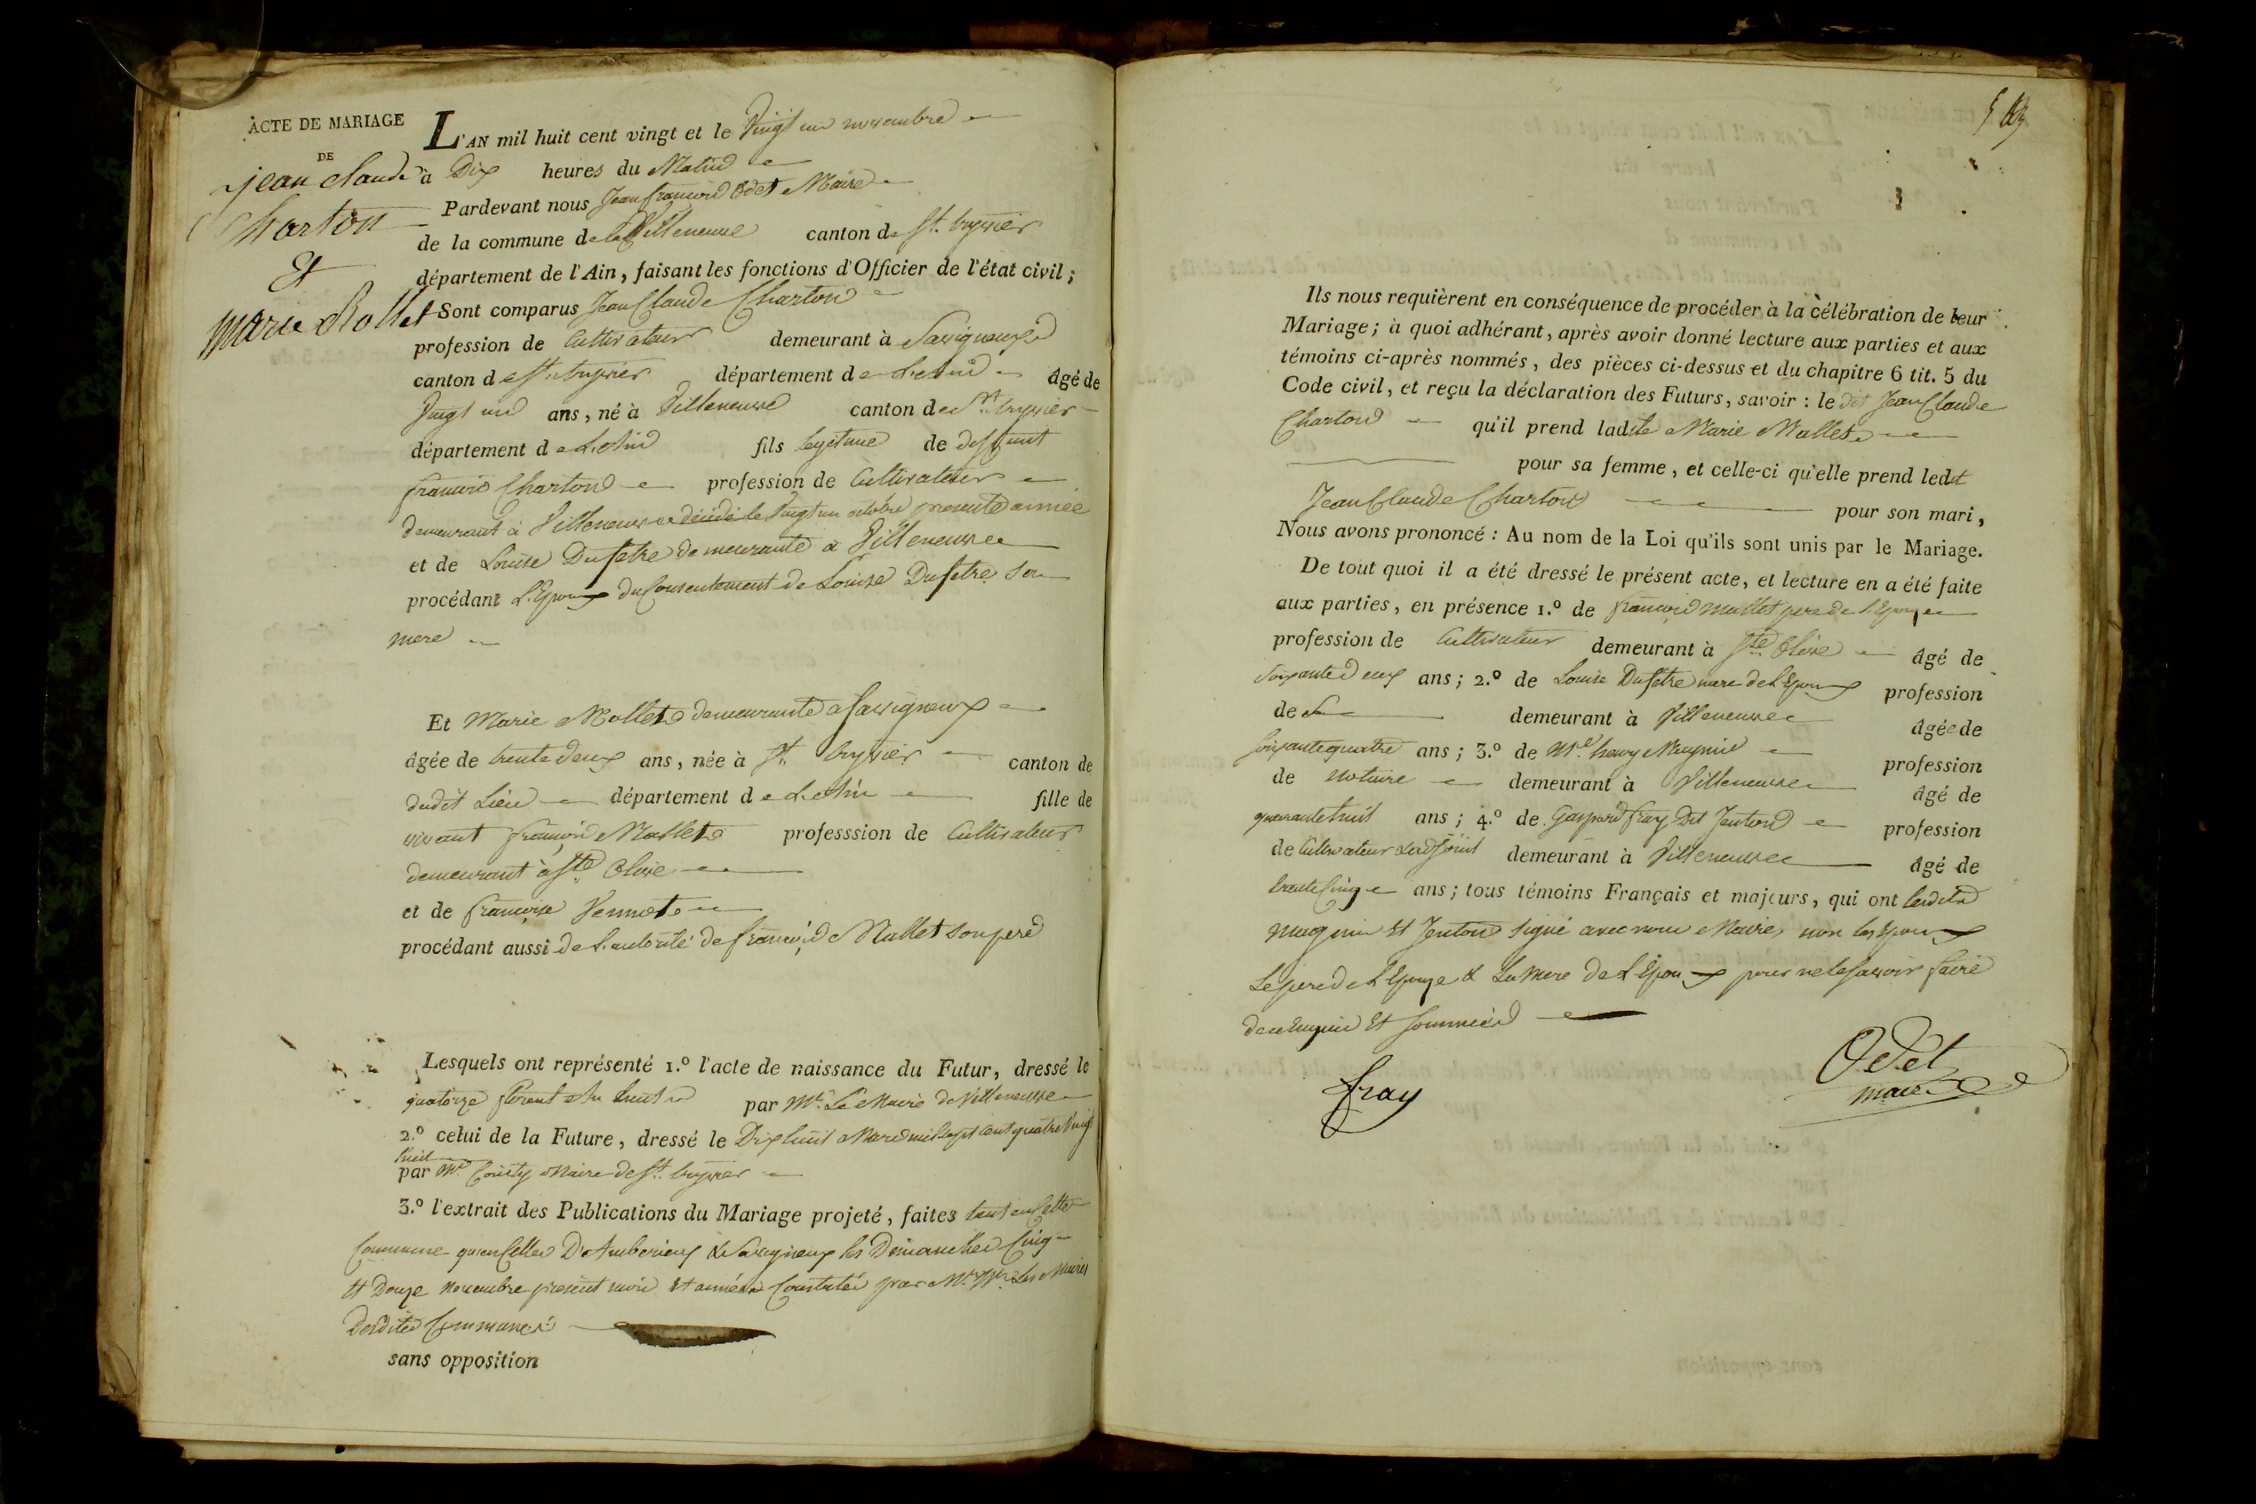 ACTE DE MARIAGE
DE
jean claude
charton
Et
marie Mollet
L'AN mil huit cent vingt et le Vingt un novembre
à Dix heures du Matin
Pardevant nous Jean françois Odet Maire
de la commune de Villeneuve canton de St. trivier
département de l'Ain, faisant les fonctions d'Officier de l'état civil;
Sont comparus Jean Claude Charton
profession de Cultivateur demeurant à Savigneux
canton de St. trivier département de L'ain âgé de
Vingt un ans, né à Villeneuve canton de St. trivier
département de L'ain fils legitime de deffunt
françois Charton profession de Cultivateur
demeurant à Villeneuve décédé le Vingt un octobre presente année
et de Louise Dufetre demeurante à Villeneuve
procédant L'Epoux du Consentement de Louise Dufetre sa
mere
Et Marie Mollet demeurante a Savigneux
âgée de trente deux ans, née à St. trivier canton de
dudit Lieu département de L'ain fille de
vivant françois Mallet professsion de Cultivateur
demeurant à Ste. Olive
et de françoise
procédant aussi de L'autorité de françois Mallet son pere
Lesquels ont représenté 1.º l'acte de naissance du Futur, dressé le
quatorze an huit par Mr. Le Maire de Villeneuve
2.º celui de la Future, dressé le Dix huit Mars mil sept cent quatre Vingt
huit
par Mr. Maire de St. trivier
3.º l'extrait des Publications du Mariage projeté, faites tant en Cette
Commune qu'en Celles D'Amberieux & Savigneux les Dimanches Cinq
et Douze novembre present mois et année Constatées par Mrs. Les Maires
Desdites Communes
sans opposition
Ils nous requièrent en conséquence de procéder à la célébration de leur
Mariage; à quoi adhérant, après avoir donné lecture aux parties et aux
témoins ci-après nommés, des pièces ci-dessus et du chapitre 6 tit. 5 du
Code civil, et reçu la déclaration des Futurs, savoir: le dit Jean Claude
Charton qu'il prend ladite Marie Mallet
pour sa femme, et celle-ci qu'elle prend ledit
Jean Claude Charton pour son mari,
Nous avons prononcé: Au nom de la Loi qu'ils sont unis par le Mariage.
De tout quoi il a été dressé le présent acte, et lecture en a été faite
aux parties, en présence 1.º de françois mallet pere de L'Epouse
profession de Cultivateur demeurant à Ste. Olive âgé de
Soixante deux ans; 2.º de Louise Dufetre mere de L'Epoux profession
de demeurant à Villeneuve âgée de
soixante quatre ans; 3.º de Mr. henry profession
de notaire demeurant à Villeneuve âgé de
quarante huit ans; 4.º de Gaspard fray Dit Jenton profession
de Cultivateur & adjoint demeurant à Villeneuve âgé de
trente Cinq ans; tous témoins Français et majeurs, qui ont lesdits
et Jenton signé avec nous Maire, non les Epoux
Le pere de L'Epouse & La mere de L'Epoux pour ne le savoir faire
de ce Enquis Et sommés
fray
Odet
maire